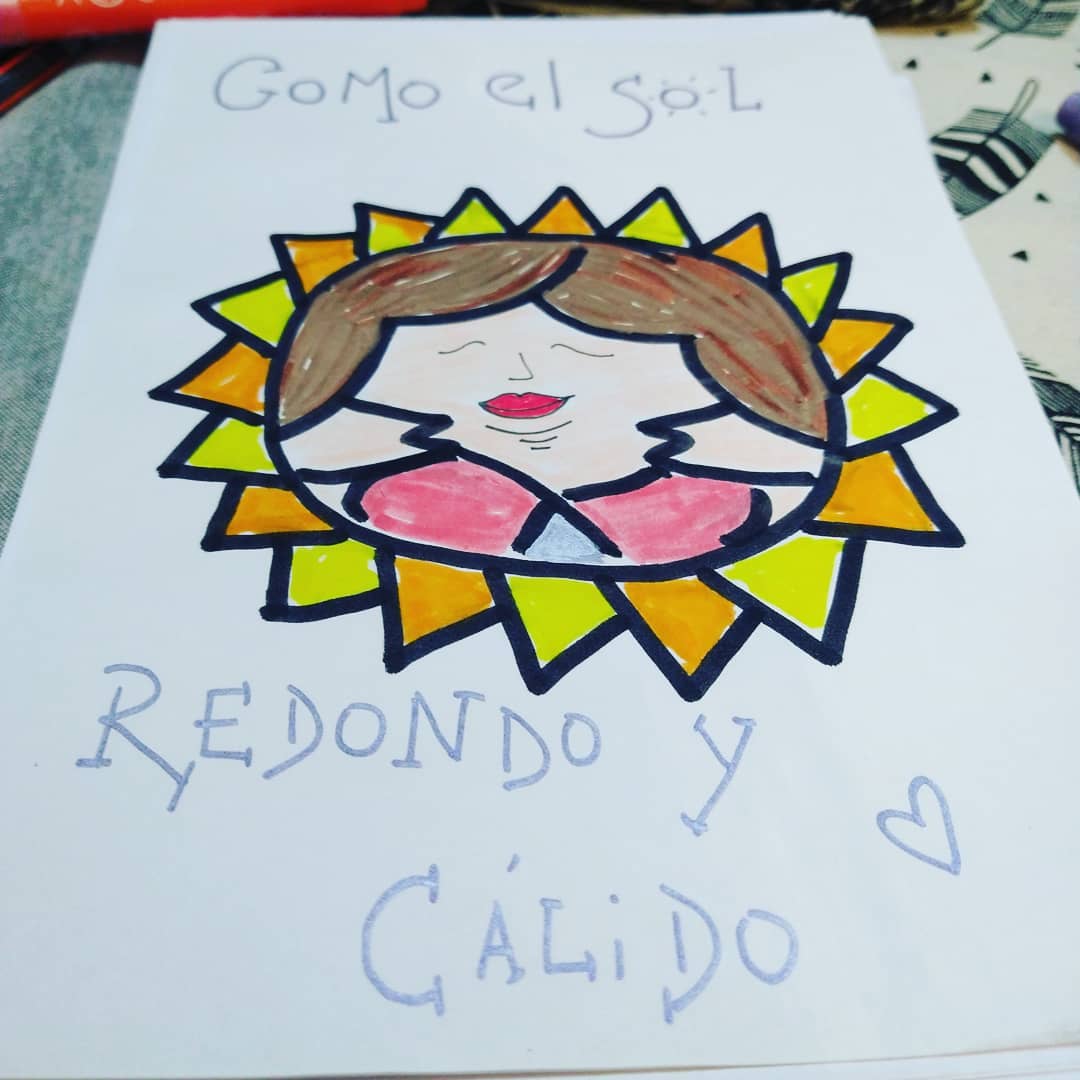 COMO el SOL
REDONDO Y
CÁLiDO